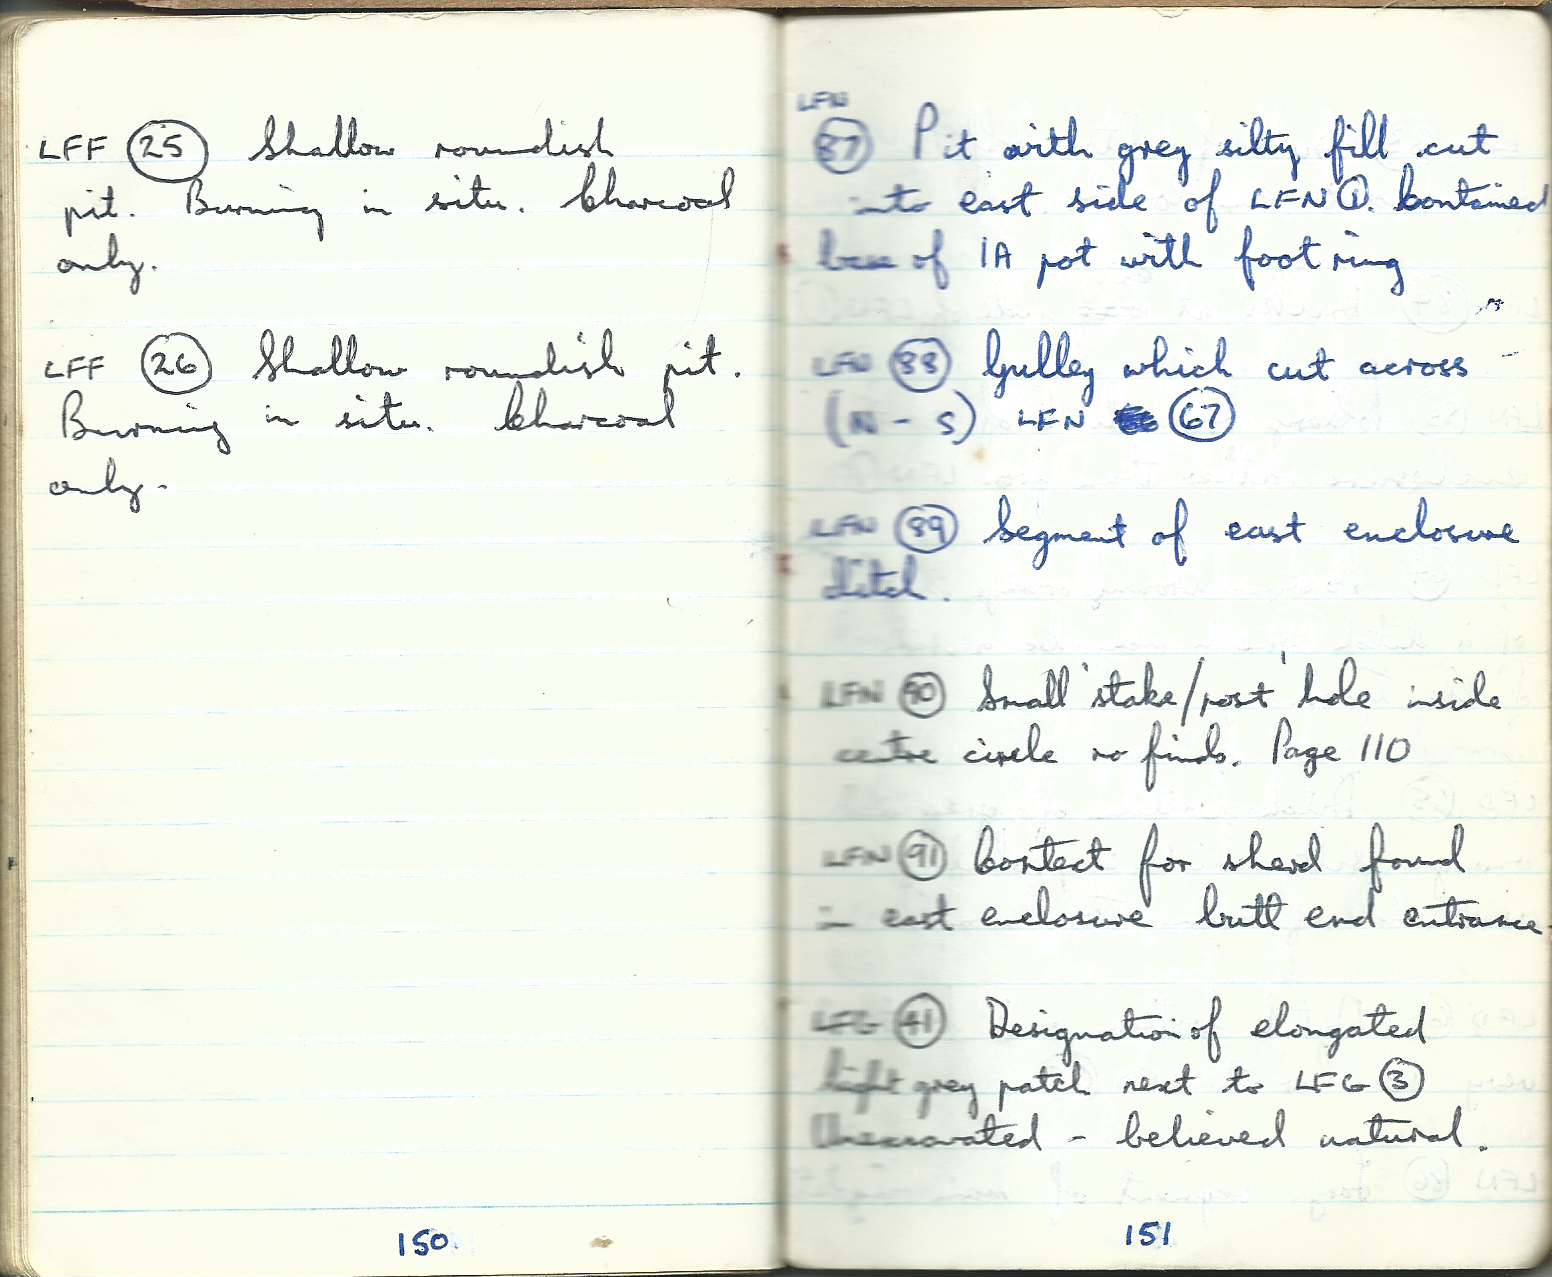 LFF (25) Shallow roundish
pit. Burning in situ. Charcoal
only.
LFF (26) Shallow roundish pit.
Burning in situ. Charcoal
only.
150
LFN
(87) Pit with grey silty fill cut
into east side of LFN (1). Contained
base of IA pot with foot ring
LFN (88) Gulley which cut across
(N - S) LFN (67)
LFN (89) Segment of east enclosure
ditch.
LFN (90) Small 'stake/post' hole inside
centre circle no finds. Page 110
LFN (91) Context for sherd found
in east enclosure butt end entrance.
LFG (41) Designation of elongated
light grey patch next to LFG (3)
Unexcavated - believed natural.
151